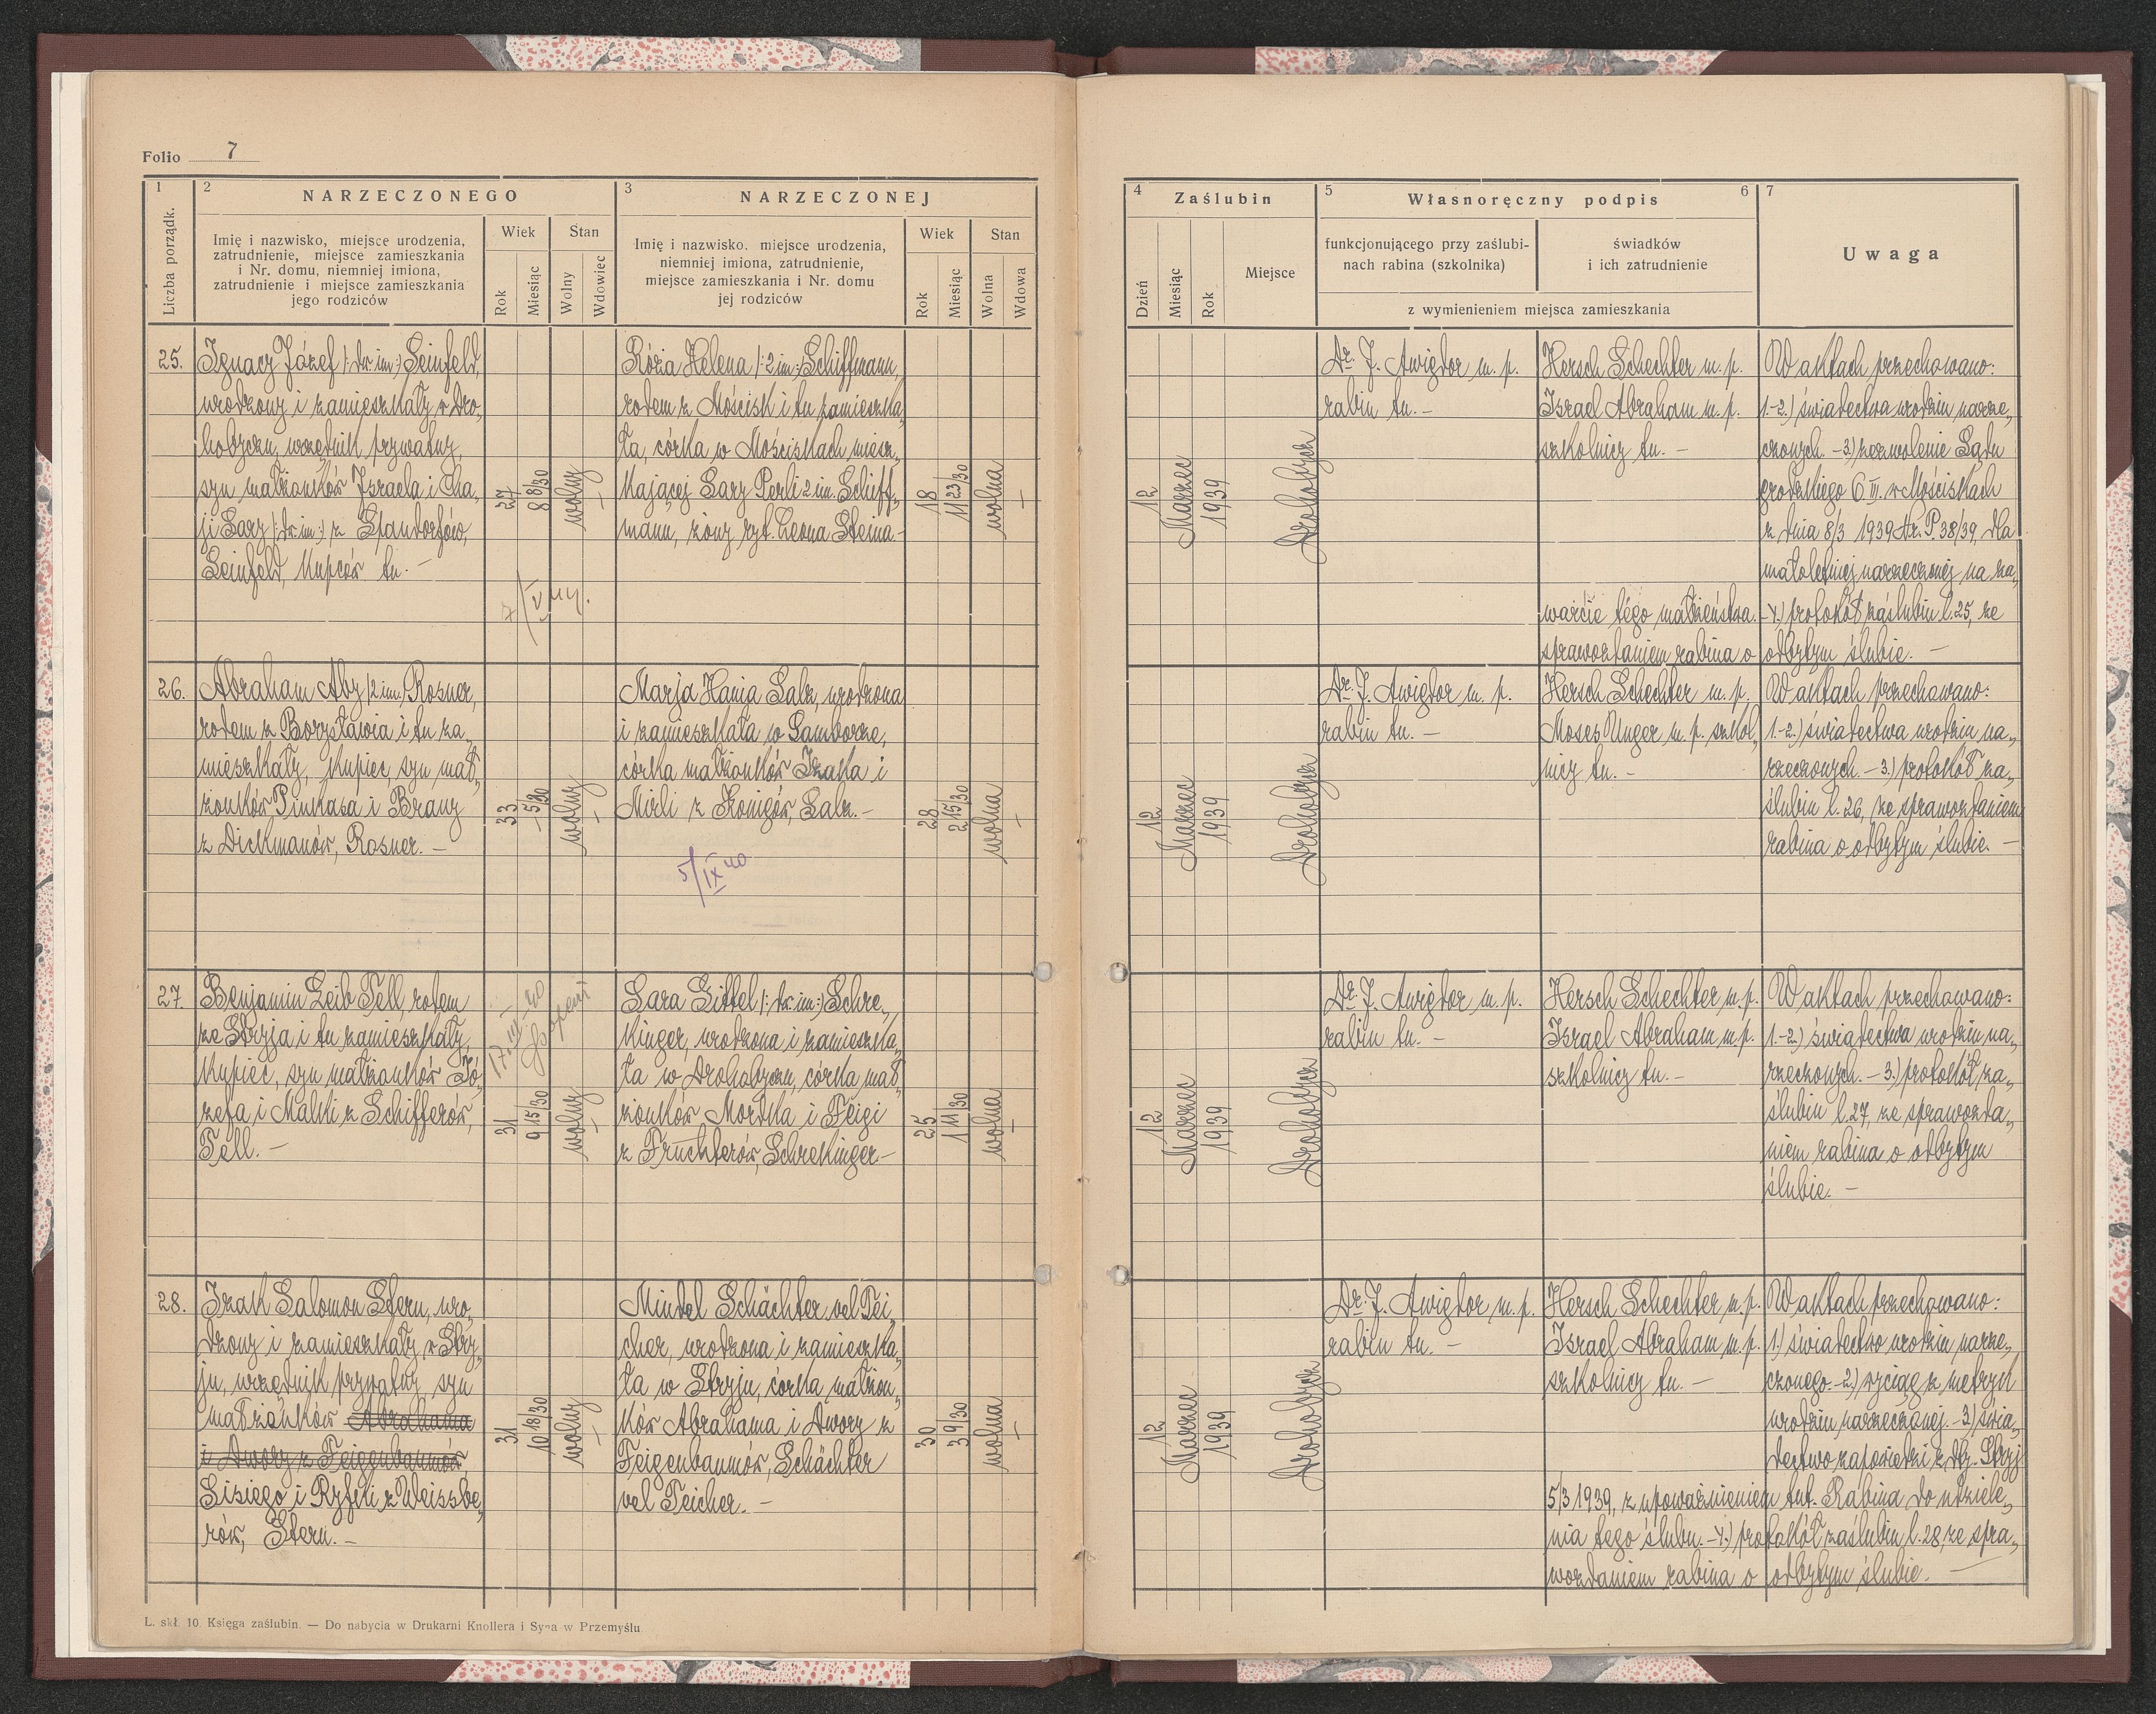 Folio 7
1
Liczba porządk.
2
NARZECZONEGO
Imię i nazwisko, miejsce urodzenia,
zatrudnienie, miejsce zamieszkania
i Nr. domu, niemniej imiona,
zatrudnienie i miejsce zamieszkania
jego rodziców
Wiek
Rok
Miesiąc
Stan
Wolny
Wdowiec
3
NARZECZONEJ
Imię i nazwisko. miejsce urodzenia,
niemniej imiona, zatrudnienie,
miejsce zamieszkania i Nr. domu
jej rodziców
Wiek
Rok
Miesiąc
Stan
Wolna
Wdowa
4
Zaślubin
Dzień
Miesiąc
Rok
Miejsce
5
Własnoręczny podpis
6
funkcjonującego przy zaślubi-
nach rabina (szkolnika)
świadków
i ich zatrudnienie
z wymienieniem miejsca zamieszkania
7
Uwaga
25.
Ignacy Józef /:dw. im:/ Seinfeld,
urodzony i zamieszkały w Dro„
hobyczu, urzędnik prywatny,
syn małżonków Izraela i Cha„
ji Sary /:dw. im:/ z Standorfów,
Seinfeld, kupców tu. –
27
8 8/30
wolny
–
7/V 41.
Róża Helena /:2 im:/ Schiffmann,
rodem z Mościsk i tu zamieszka„
ła, córka w Mościskach miesz„
kającej Sary Perli 2 im. Schiff„
mann, żony ryt. Leona Steina.–
18
11 23/30
wolna
–
12
Marzec
1939
Drohobycz
Dr. J. Awigdor m. p.
rabin tu. –
Hersch Schechter m. p.
Israel Abraham m. p.
szkolnicy tu. –
W aktach przechowano:
1.-2.) świadectwa urodzin narze„
czonych. – 3.) zezwolenie Sądu
grodzkiego O. III. w Mościskach
z dnia 8/3 1939 Nr. P. 38/39, dla
małoletniej narzeczonej na za„
warcie tego małżeństwa. – 4.) protokół zaślubin l. 25, ze
sprawozdaniem rabina o odbytym ślubie. –
26.
Abraham Aby /2 im:/ Rosner,
rodem z Borysławia i tu za„
mieszkały, kupiec, syn mał„
żonków Pinkasa i Brany
z Dickmanów, Rosner. –
33
– 5/30
wolny
–
Marja Hania Salz, urodzona
i zamieszkała w Samborze,
córka małżonków Izaka i
Mirli z Königów, Salz. –
5/IX 40
28
2 15/30
wolna
–
12
Marzec
1939
Drohobycz
Dr. J. Awigdor m. p.
rabin tu. –
Hersch Schechter m. p.
Moses Unger m. p. szkol„
nicy tu. –
W aktach przechowano:
1.-2.) świadectwa urodzin na„
rzeczonych. – 3.) protokół za„
ślubin l. 26, ze sprawozdaniem
rabina o odbytym ślubie. –
27.
Benjamin Leib Tell, rodem
ze Stryja i tu zamieszkały,
kupiec, syn małżonków Jó„
zefa i Malki z Schifferów,
Tell. –
31
9 15/30
wolny
–
17.III-40
Sara Gittel /:dw. im:/ Schre„
kinger, urodzona i zamieszka„
ła w Drohobyczu, córka mał„
żonków Mordka i Feigi
z Fruchterów, Schrekinger –
25
1 11/30
wolna
–
12
Marzec
1939
Drohobycz
Dr. J. Awigdor m. p.
rabin tu. –
Hersch Schechter m. p.
Israel Abraham m. p.
szkolnicy tu. –
W aktach przechowano:
1.-2.) świadectwa urodzin na„
rzeczonych. – 3.) protokół za„
ślubin l. 27, ze sprawozda„
niem rabina o odbytym
ślubie. –
28.
Izak Salomon Stern, uro„
dzony i zamieszkały w Stry„
ju, urzędnik prywatny, syn
małżonków Abrahama
i Dwory z Feigenbaumów
Sisiego i Ryfki z Weissbe„
rów, Stern. –
31
10 18/30
wolny
–
Mindel Schächter vel Tei„
cher, urodzona i zamieszka„
ła w Stryju, córka małżon„
ków Abrahama i Dwory z
Feigenbaumów, Schächter
vel Teicher. –
30
3 9/30
wolna
–
12
Marzec
1939
Drohobycz
Dr. J. Awigdor m. p.
rabin tu. –
Hersch Schechter m. p.
Israel Abraham m. p.
szkolnicy tu. –
W aktach przechowano:
1.) świadectwo urodzin narze„
czonego. – 2.) wyciąg z metryk
urodzin narzeczonej. – 3.) świa„
dectwo zapowiedzi z dty. Stryj
5/3 1939, z upoważnieniem tut. Rabina do udziele„
nia tego ślubu. – 4.) protokół zaślubin l. 28, ze spra„
wozdaniem rabina o odbytym ślubie. –
L. skł. 10. Księga zaślubin. — Do nabycia w Drukarni Knollera i Syna w Przemyślu.